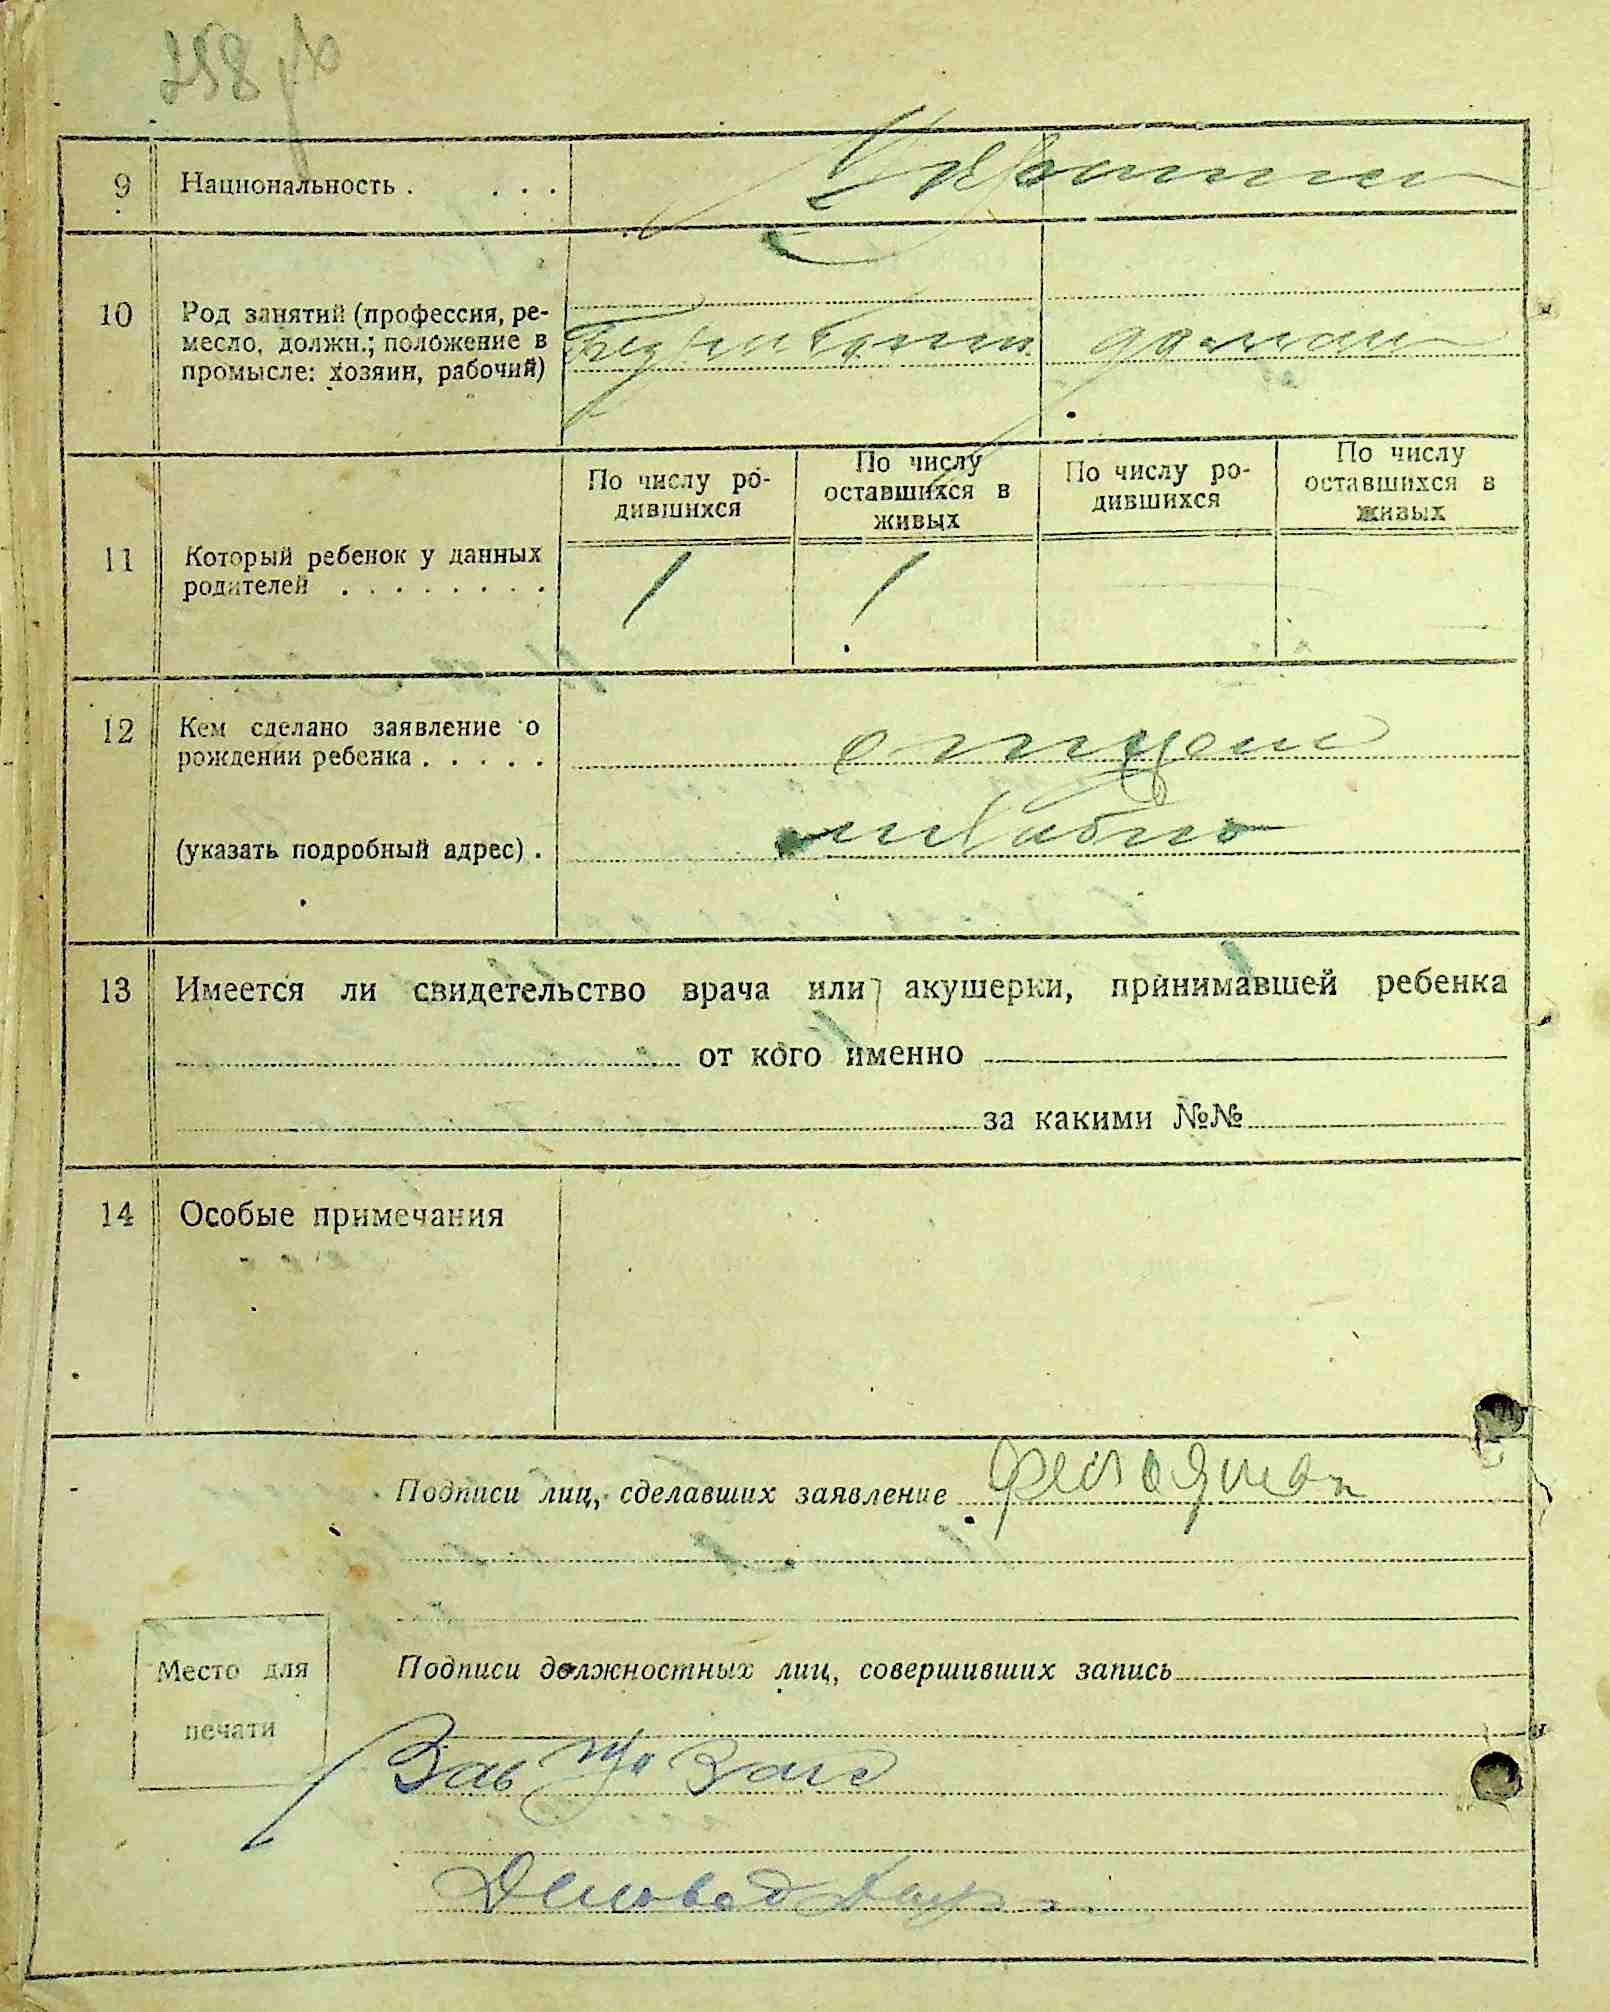 258
9 Национальность . . . .
10 Род занятий (профессия, ре-
месло, должн.; положение в
промысле: хозяин, рабочий)
11 Который ребенок у данных
родителей . . . . . . . .
По числу ро-
дившихся
По числу
оставшихся в
живых
По числу ро-
дившихся
По числу
оставшихся в
живых
1 1
12 Кем сделано заявление о
рождении ребенка . . . . .
отцом
(указать подробный адрес) .
13 Имеется ли свидетельство врача или акушерки, принимавшей ребенка
от кого именно
за какими №№
14 Особые примечания
Подписи лиц, сделавших заявление
Место для
печати
Подписи должностных лиц, совершивших запись
Зав
Деловод